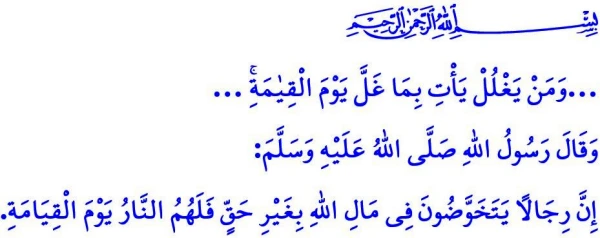 بِسْمِ اللهِ الرَّحْمٰنِ الرَّحِيمِ
...وَمَنْ يَغْلُلْ يَأْتِ بِمَا غَلَّ يَوْمَ الْقِيٰمَةِۚ ...
وَقَالَ رَسُولُ اللهِ صَلَّى اللهُ عَلَيْهِ وَسَلَّمَ:
إِنَّ رِجَالًا يَتَخَوَّضُونَ فِى مَالِ اللهِ بِغَيْرِ حَقٍّ فَلَهُمُ النَّارُ يَوْمَ الْقِيَامَةِ.